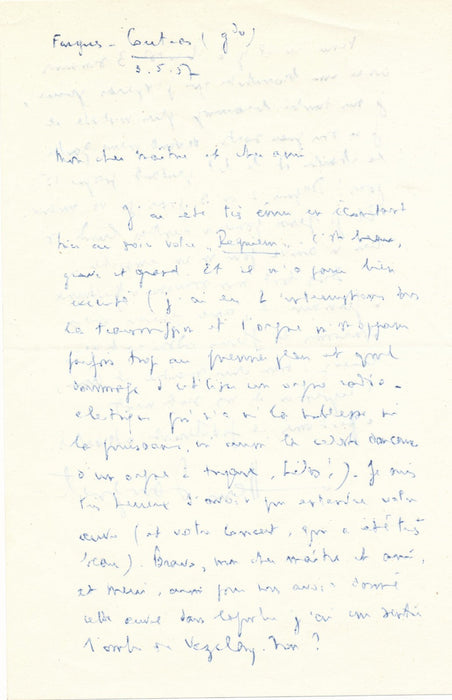 Fargues - Coutras (gde)
3.5.57
Mon cher maître et cher ami
J'ai été très ému en écoutant
hier au soir votre "Requiem". C'est beau,
grave et grand. Et il m'a paru bien
exécuté (j'ai eu 2 interruptions dans
la transmission et l'orgue m'est apparu
parfois trop au premier plan et quel
dommage d'utiliser un orgue radio-
électrique qui n'a ni la noblesse ni
la puissance, ni aussi la céleste douceur
d'un orgue à tuyaux, hélas!). Je suis
très heureux d'avoir pu entendre votre
œuvre (et votre concert, qui a été très
beau). Bravo, mon cher maître et ami,
et merci, aussi pour nous avoir donné
cette œuvre dans laquelle j'ai cru sentir
l'ombre de Vézelay. Non ?